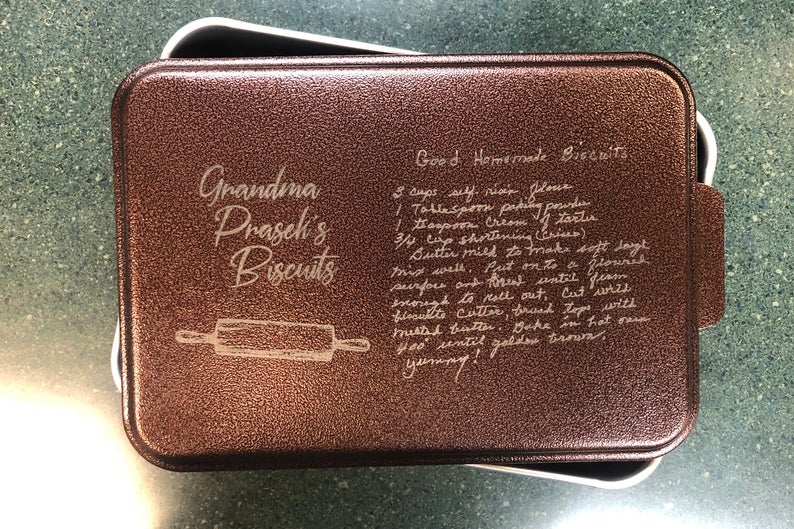 Grandma
Prasek's
Biscuits
Good Homemade Biscuits
3 cups self risin floue
1 Tablespoon baking powder
1 teaspoon Cream of tarter
3/4 cup shortening (Crisco)
Butter milk to make soft dough
mix well. Put onto a floured
surface and knead until firm
enough to roll out. Cut with
biscuite cutter, brush tops with
melted butter. Bake in hot oven
400° until golden brown.
yummy!